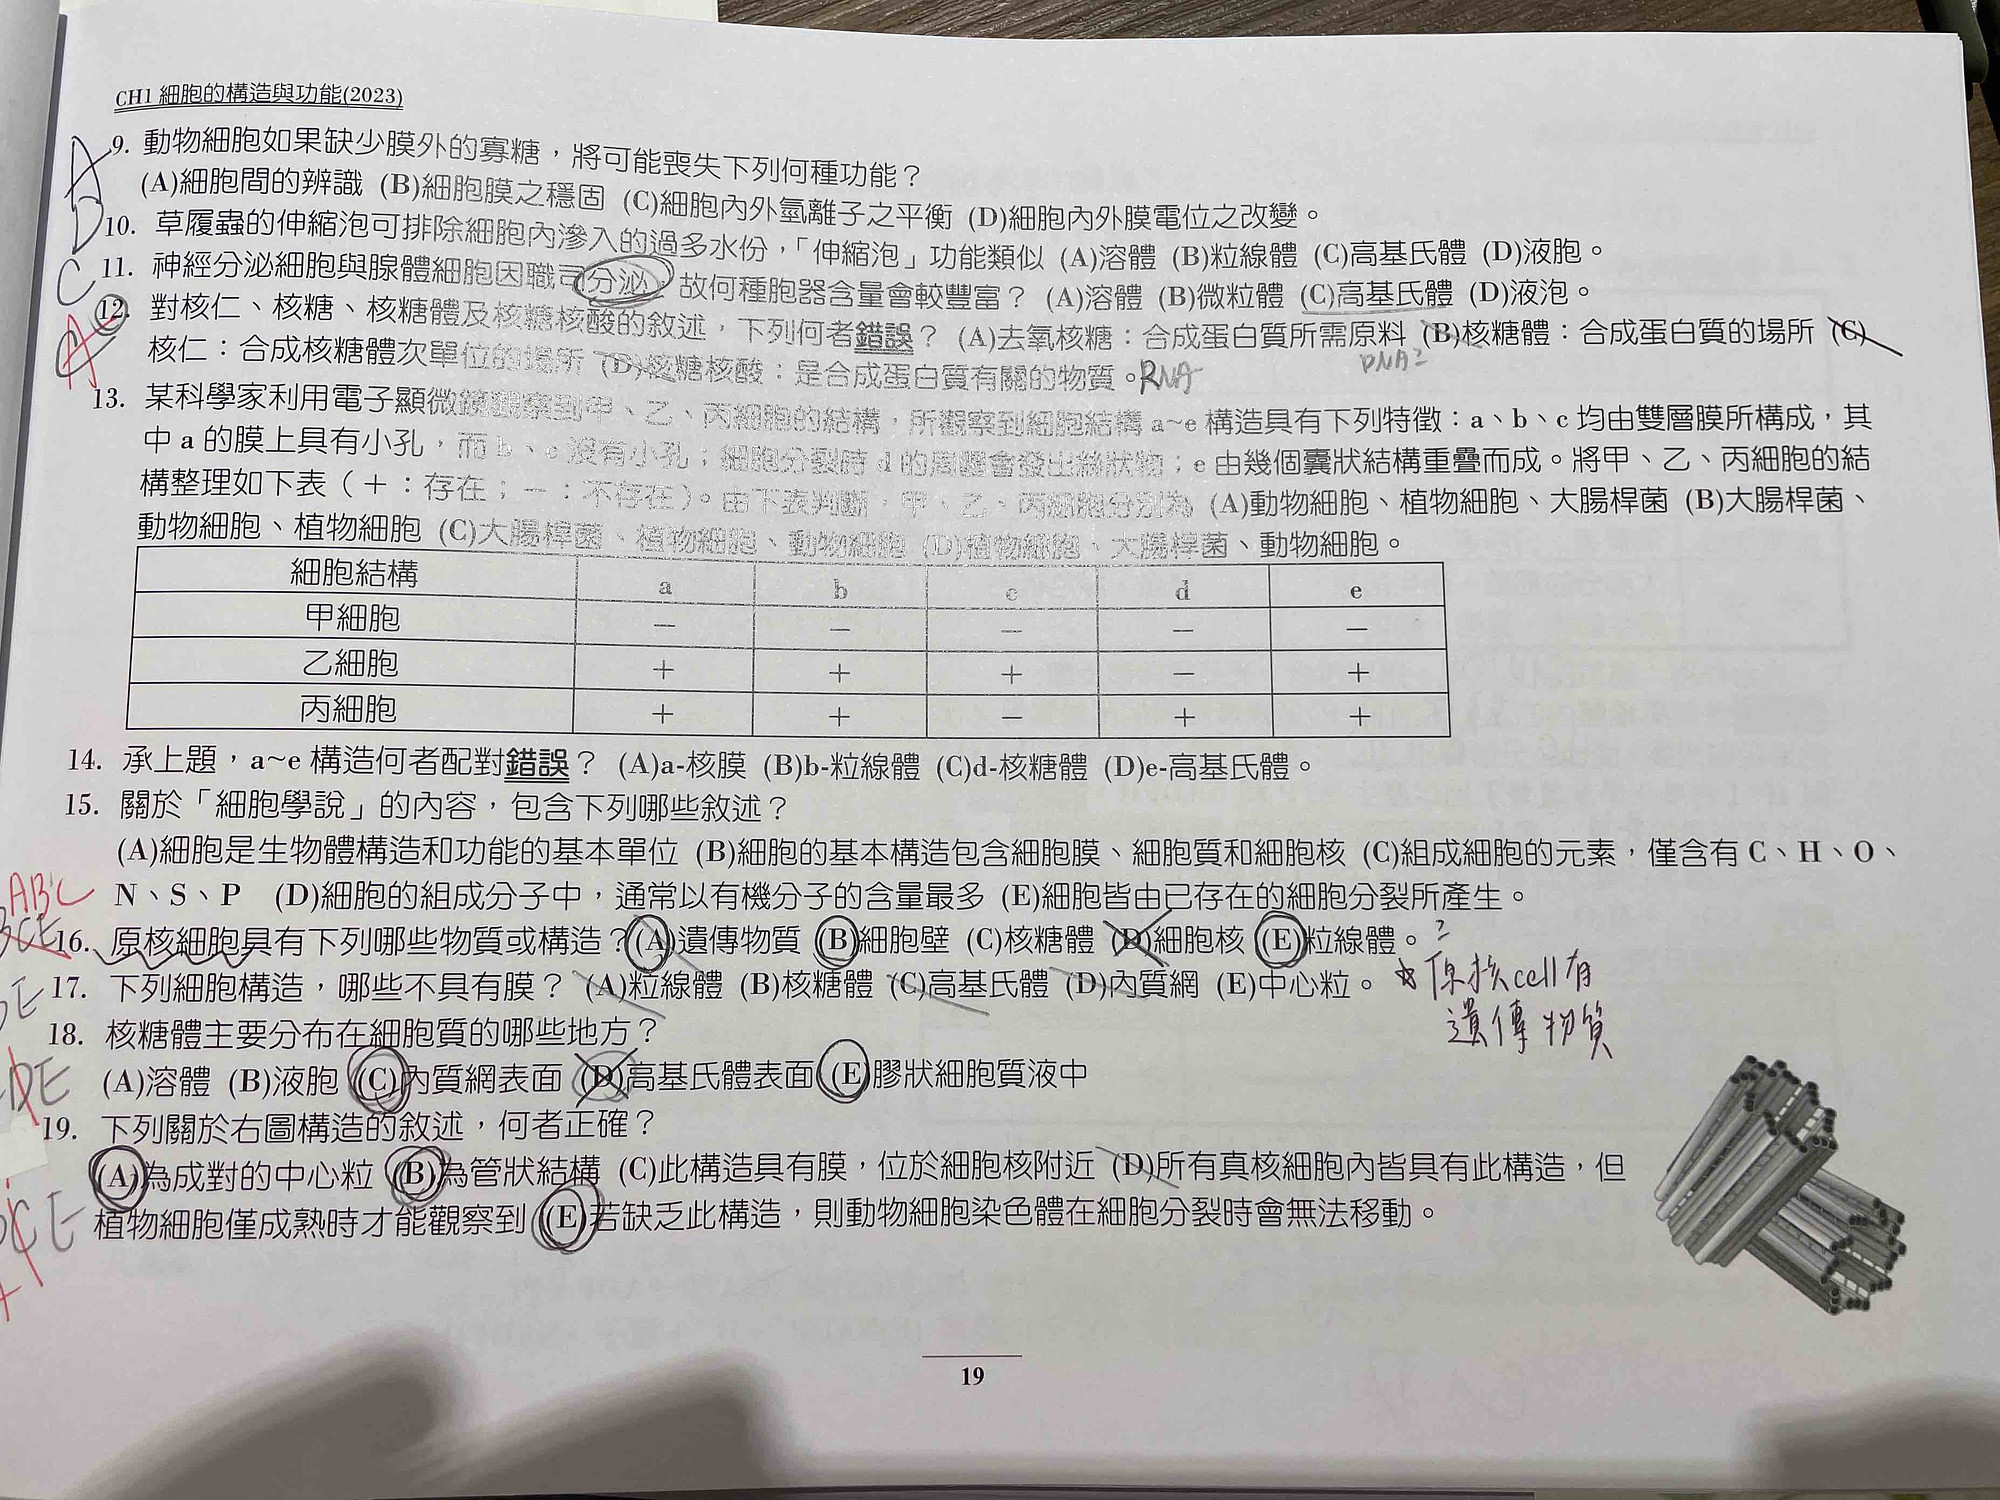 CH1 細胞的構造與功能(2023)
A 9. 動物細胞如果缺少膜外的寡糖，將可能喪失下列何種功能？
(A)細胞間的辨識 (B)細胞膜之穩固 (C)細胞內外氫離子之平衡 (D)細胞內外膜電位之改變。
D 10. 草履蟲的伸縮泡可排除細胞內滲入的過多水份，「伸縮泡」功能類似 (A)溶體 (B)粒線體 (C)高基氏體 (D)液胞。
C 11. 神經分泌細胞與腺體細胞因職司分泌，故何種胞器含量會較豐富？ (A)溶體 (B)微粒體 (C)高基氏體 (D)液泡。
A 12. 對核仁、核糖、核糖體及核糖核酸的敘述，下列何者錯誤？ (A)去氧核糖：合成蛋白質所需原料 (B)核糖體：合成蛋白質的場所 (C)
核仁：合成核糖體次單位的場所 (D)核糖核酸：是合成蛋白質有關的物質。RNA DNA?
13. 某科學家利用電子顯微鏡觀察到甲、乙、丙細胞的結構，所觀察到細胞結構 a~e 構造具有下列特徵：a、b、c 均由雙層膜所構成，其
中 a 的膜上具有小孔，而 b、c 沒有小孔；細胞分裂時 d 的周圍會發出絲狀物；e 由幾個囊狀結構重疊而成。將甲、乙、丙細胞的結
構整理如下表（＋：存在；－：不存在）。由下表判斷，甲、乙、丙細胞分別為 (A)動物細胞、植物細胞、大腸桿菌 (B)大腸桿菌、
動物細胞、植物細胞 (C)大腸桿菌、植物細胞、動物細胞 (D)植物細胞、大腸桿菌、動物細胞。
細胞結構 a b c d e
甲細胞 － － － － －
乙細胞 ＋ ＋ ＋ － ＋
丙細胞 ＋ ＋ － ＋ ＋
14. 承上題，a~e 構造何者配對錯誤？ (A)a-核膜 (B)b-粒線體 (C)d-核糖體 (D)e-高基氏體。
15. 關於「細胞學說」的內容，包含下列哪些敘述？
(A)細胞是生物體構造和功能的基本單位 (B)細胞的基本構造包含細胞膜、細胞質和細胞核 (C)組成細胞的元素，僅含有 C、H、O、
N、S、P (D)細胞的組成分子中，通常以有機分子的含量最多 (E)細胞皆由已存在的細胞分裂所產生。
ABC
16. 原核細胞具有下列哪些物質或構造？(A)遺傳物質 (B)細胞壁 (C)核糖體 (D)細胞核 (E)粒線體。?
17. 下列細胞構造，哪些不具有膜？ (A)粒線體 (B)核糖體 (C)高基氏體 (D)內質網 (E)中心粒。
原核cell有
遺傳物質
18. 核糖體主要分布在細胞質的哪些地方？
(A)溶體 (B)液胞 (C)內質網表面 (D)高基氏體表面 (E)膠狀細胞質液中
19. 下列關於右圖構造的敘述，何者正確？
(A)為成對的中心粒 (B)為管狀結構 (C)此構造具有膜，位於細胞核附近 (D)所有真核細胞內皆具有此構造，但
植物細胞僅成熟時才能觀察到 (E)若缺乏此構造，則動物細胞染色體在細胞分裂時會無法移動。
19